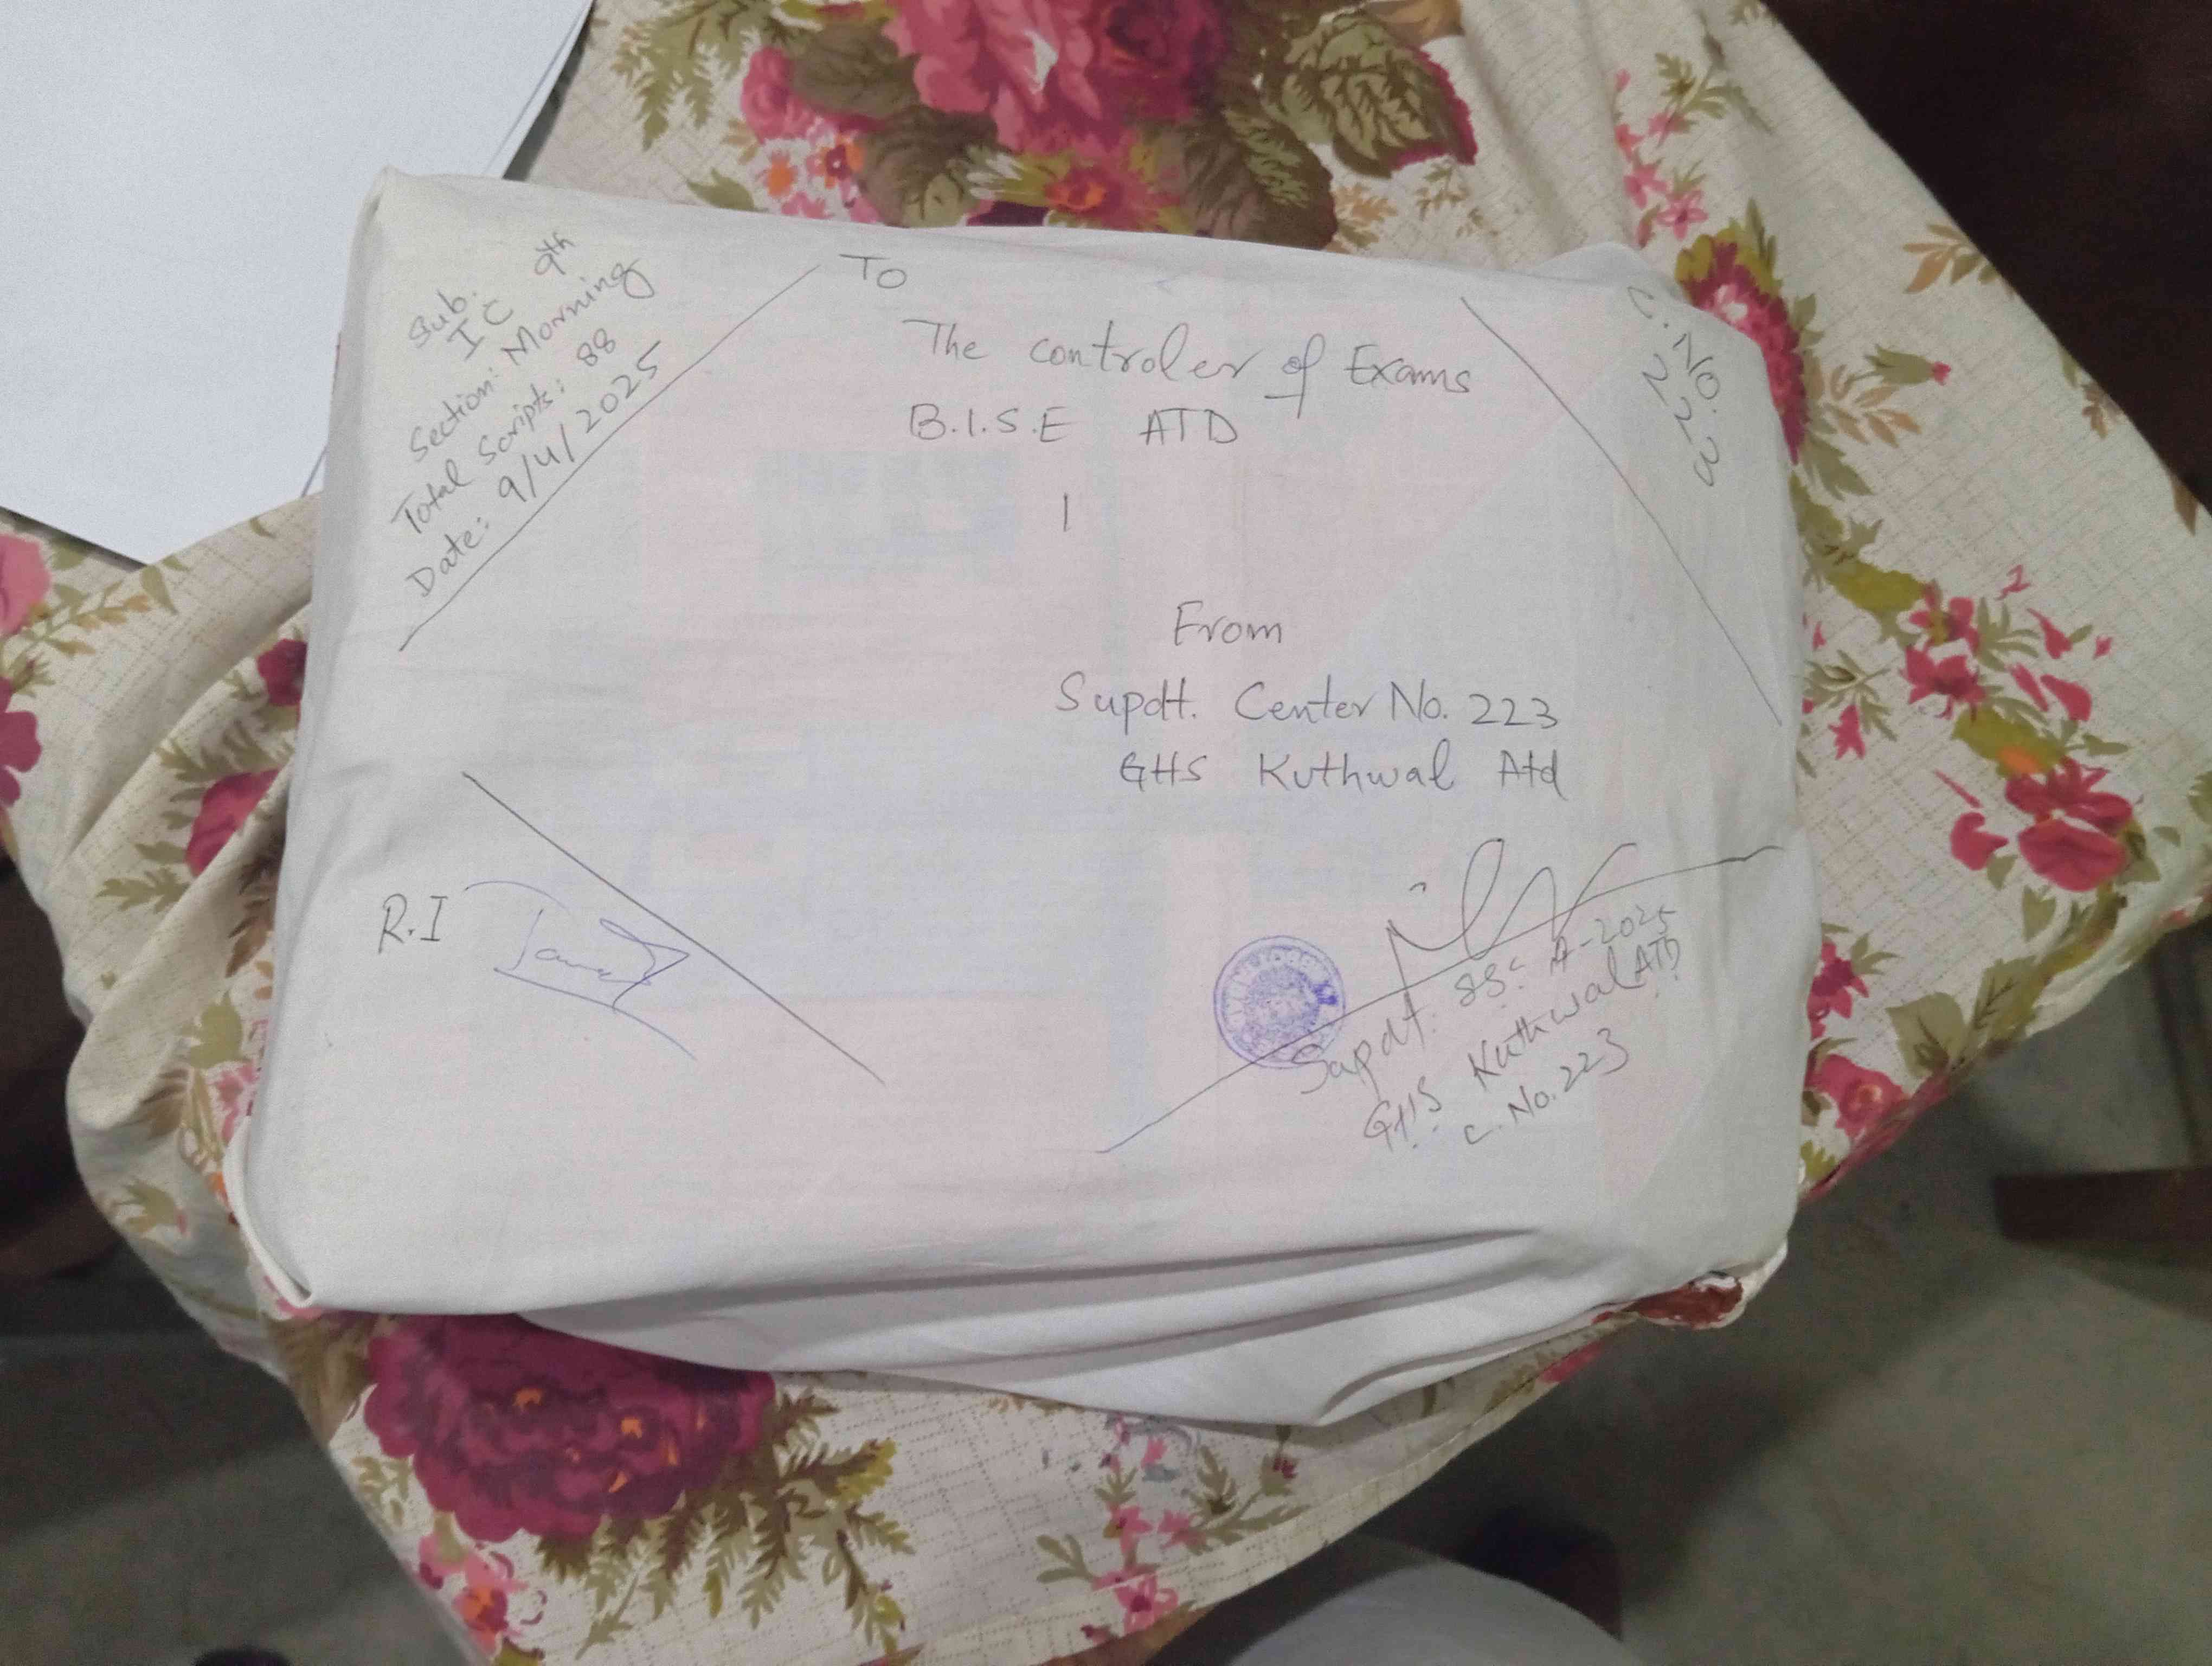 Sub.
IC 9th
Section: Morning
Total Scripts: 88
Date: 9/4/2025
TO
The controler of Exams
B.I.S.E ATD
C.NO.
223
From
Supdt. Center No. 223
GHS Kuthwal Atd
R.I
Supdt. SSC A-2025
GHS Kuthwal ATD
C. No. 223